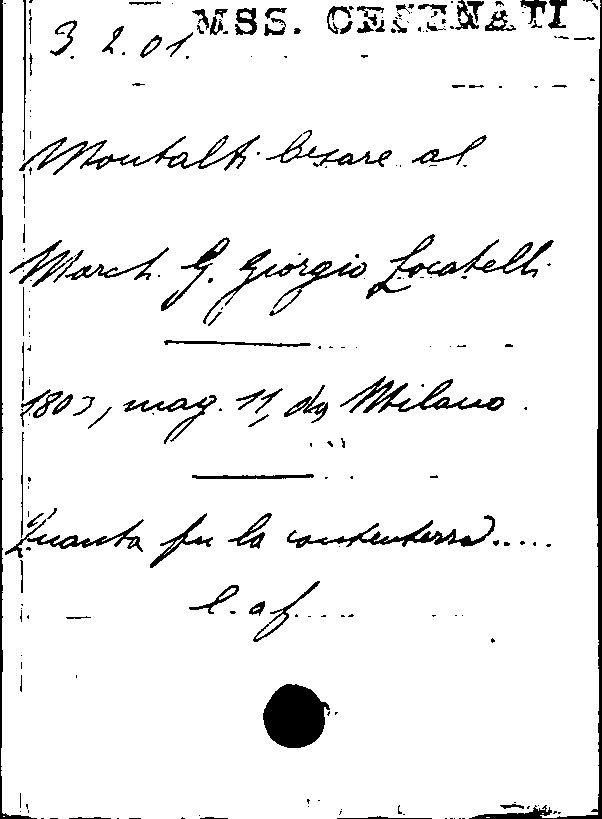 MSS. CESENATI
3. 2. 01.
Montalti Cesare al
March. G. Giorgio Locatelli
1803, mag. 11, da Milano.
Quanta fu la contentezza.....
l. af.....